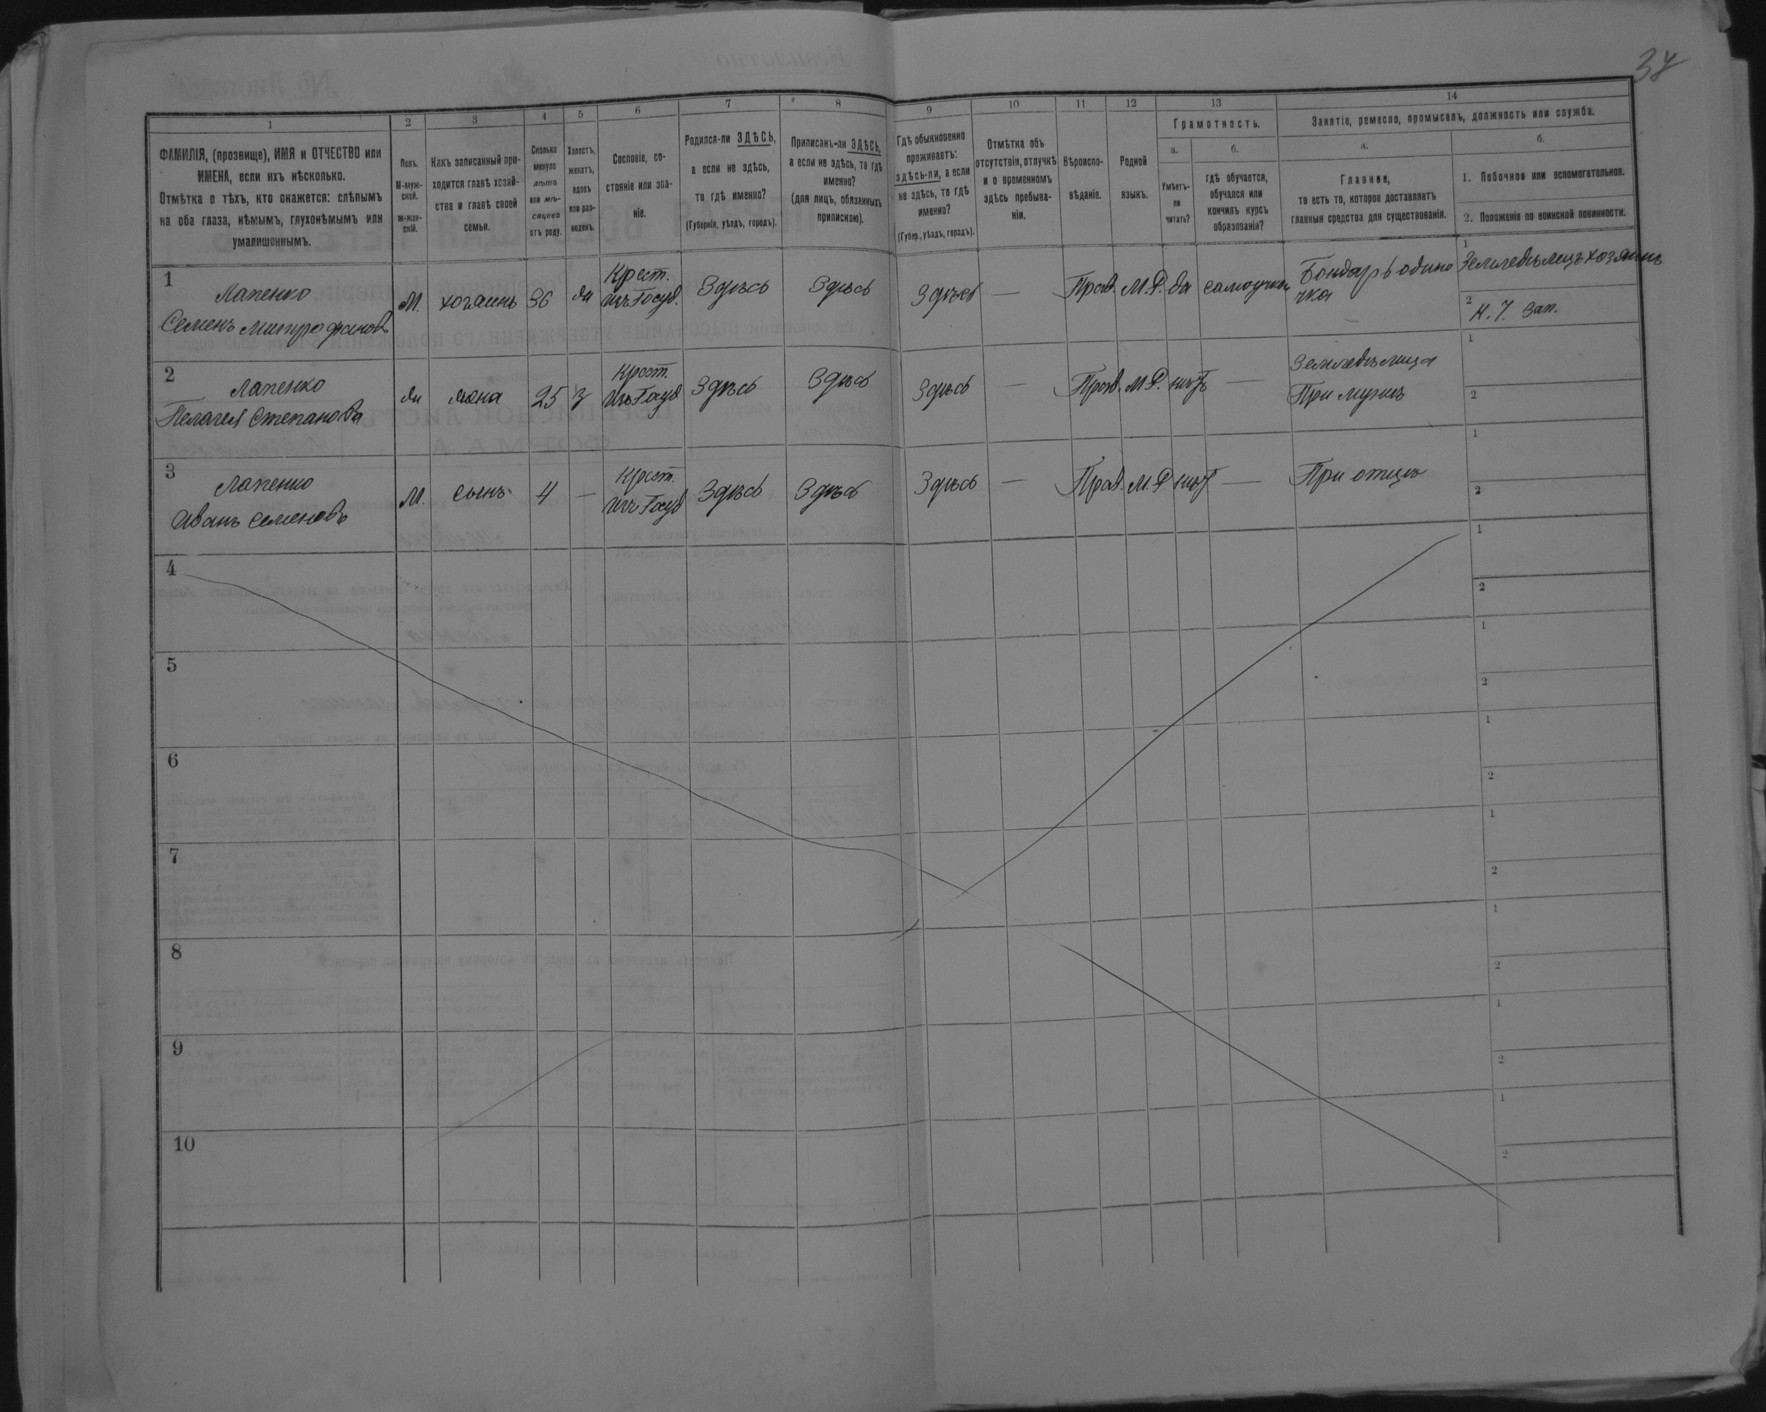 37
1
2
3
4
5
6
7
8
9
10
11
12
13
14
ФАМИЛІЯ, (прозвище), ИМЯ и ОТЧЕСТВО или
ИМЕНА, если ихъ нѣсколько.
Отмѣтка о тѣхъ, кто окажется: слѣпымъ
на оба глаза, нѣмымъ, глухонѣмымъ или
умалишоннымъ.
Полъ.
М-муж-
ской.
Ж-жен-
скій.
Какъ записанный при-
ходится главѣ хозяй-
ства и главѣ своей
семьи.
Сколько
минуло
лѣтъ
или мѣ-
сяцевъ
отъ роду.
Холостъ,
женатъ,
вдовъ
или раз-
веденъ.
Сословіе, со-
стояніе или зва-
ніе.
Родился-ли ЗДѢСЬ,
а если не здѣсь,
то гдѣ именно?
(Губернія, уѣздъ, городъ).
Приписанъ-ли ЗДѢСЬ,
а если не здѣсь, то гдѣ
именно?
(для лицъ, обязанныхъ
припискою).
Гдѣ обыкновенно
проживаетъ:
здѣсь-ли, а если
не здѣсь, то гдѣ
именно?
(Губер., уѣздъ, городъ).
Отмѣтка объ
отсутствіи, отлучкѣ
и о временномъ
здѣсь пребыва-
ніи.
Вѣроиспо-
вѣданіе.
Родной
языкъ.
Грамотность.
а.
Умѣетъ-
ли
читать?
б.
гдѣ обучается,
обучался или
кончилъ курсъ
образованія?
Занятіе, ремесло, промыселъ, должность или служба.
а.
Главное,
то есть то, которое доставляетъ
главныя средства для существованія.
б.
1. Побочное или вспомогательное.
2. Положеніе по воинской повинности.
1
Лапенко
Семенъ Митрофановъ
М. хозяинъ 36
Крест.
изъ Госуд.
Здѣсь Здѣсь Здѣсь — Прав. М.Р. да самоучки
Бондарь одино
чка
1
Земледѣлецъ хозяинъ
2
2
Лапенко
Пелагея Степанова
жена 25 з
Крест.
изъ Госуд
Здѣсь Здѣсь Здѣсь — Прав. М.Р. нѣтъ —
Земледѣлица
При мужѣ
1
2
3
Лапенко
Иванъ Семеновъ
М. сынъ 4 —
Крест.
изъ Госуд
Здѣсь Здѣсь Здѣсь — Прав. М.Р. нѣт —
При отцѣ
1
2
4
1
2
5
1
2
6
1
2
7
1
2
8
1
2
9
1
2
10
1
2